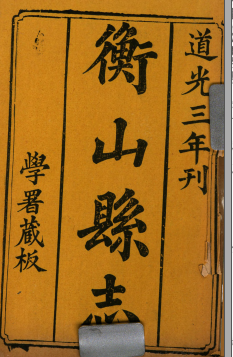 道光三年刊
衡山縣志
學署藏板